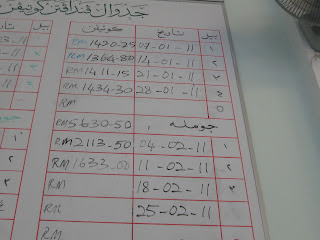 جدوال ڤنداڤتن کوتيڤن
بيل تاريخ کوتيڤن
١ 07-01-11 RM1420-25
٢ 14-01-11 RM1364-80
٣ 21-01-11 RM1411-15
٤ 28-01-11 RM1434-30
٥ RM
جومله RM5630-50
١ 04-02-11 RM2113-50
٢ 11-02-11 RM1633-00
٣ 18-02-11 RM
25-02-11 RM
RM
بيل